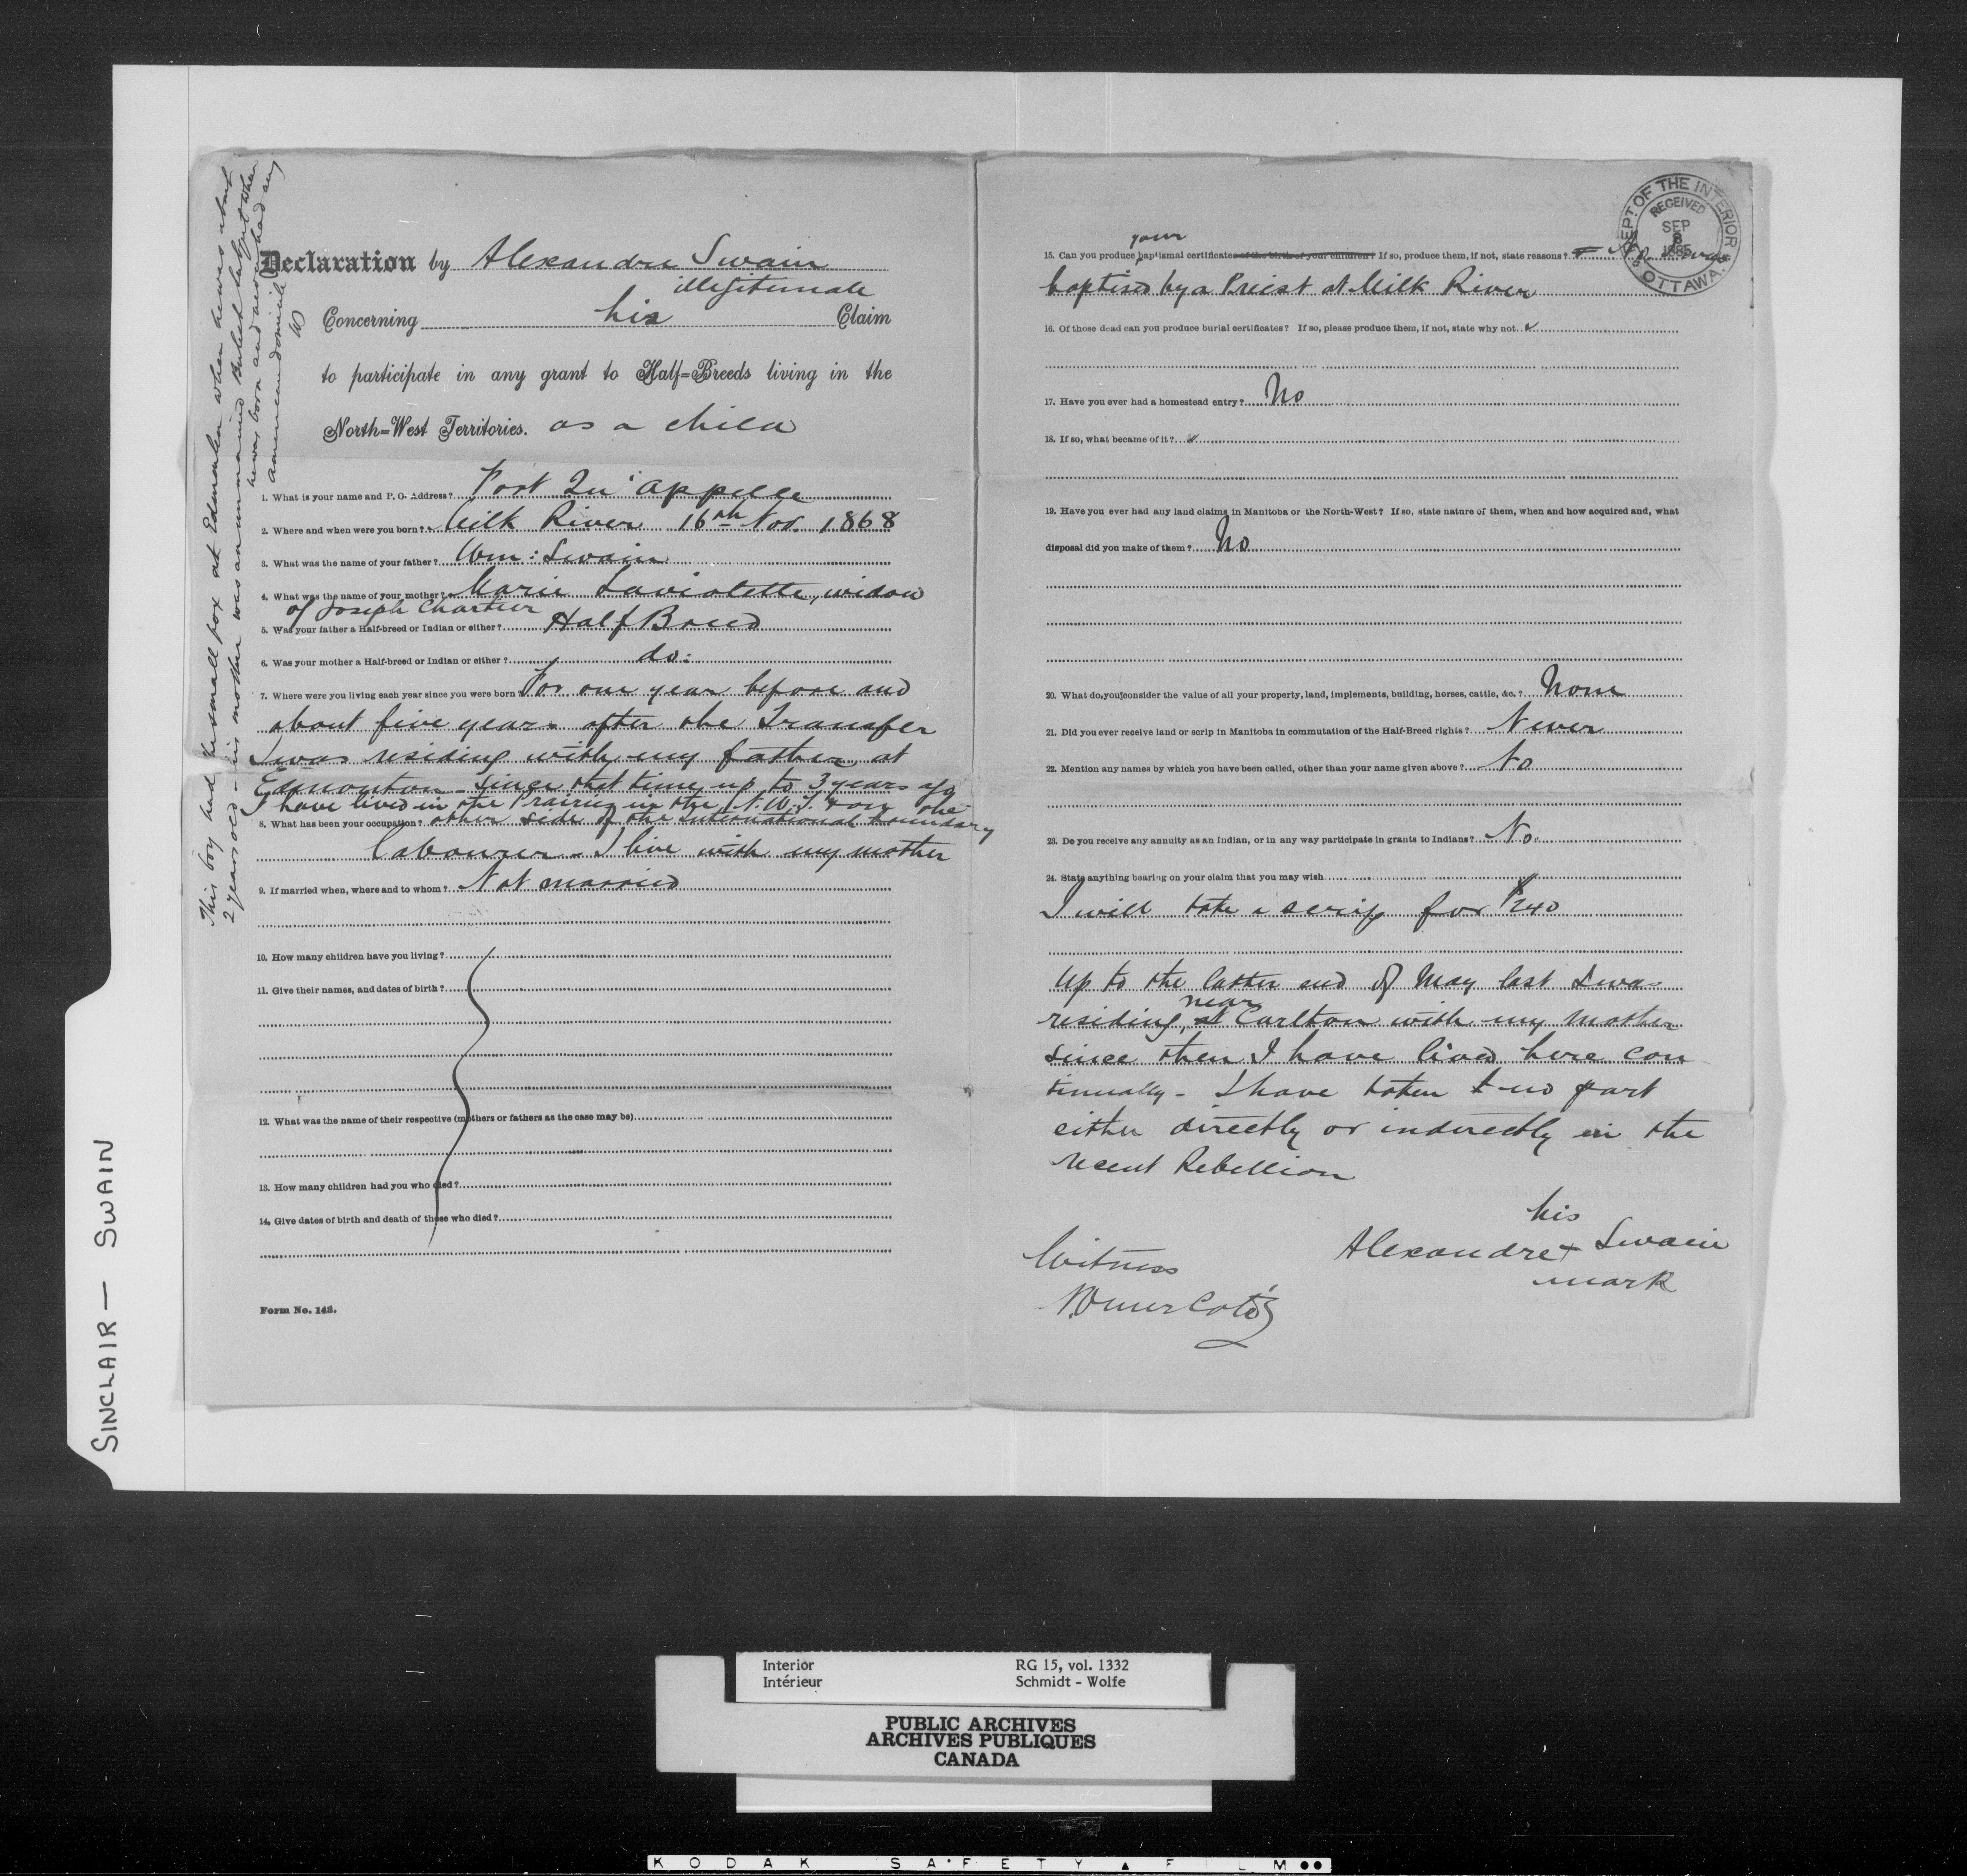 SINCLAIR — SWAIN
This boy had the small pox at Edmonton when he was about
2 years old - his mother was an unmarried
he was born and
american domicile
Declaration by Alexandre Swain
illegitimate
Concerning his Claim
to participate in any grant to Half=Breeds living in the
North=West Territories. as a child
1. What is your name and P. O. Address? Fort Qu'appelle
2. Where and when were you born? Milk River 16th Nov. 1868
3. What was the name of your father? Wm: Swain
4. What was the name of your mother? Marie Laviolette, widow
of Joseph Chartier
5. Was your father a Half-breed or Indian or either? Half Breed
6. Was your mother a Half-breed or Indian or either? do:
7. Where were you living each year since you were born? For one year before and
about five years after the Transfer
I was residing with my father at
Edmonton - Since that time up to 3 years ago
I have lived in the Prairies in the N.W.T. & on the
8. What has been your occupation? other side of the International boundary
labourer - I live with my mother
9. If married when, where and to whom? Not married
10. How many children have you living?
11. Give their names, and dates of birth?
12. What was the name of their respective (mothers or fathers as the case may be)
13. How many children had you who died?
14. Give dates of birth and death of those who died?
Form No. 143.
DEPT OF THE INTERIOR
RECEIVED
SEP
8
1885
OTTAWA.
your
15. Can you produce baptismal certificates of the birth of your children? If so, produce them, if not, state reasons? No. was
baptised by a Priest at Milk River
16. Of those dead can you produce burial certificates? If so, please produce them, if not, state why not.
17. Have you ever had a homestead entry? No
18. If so, what became of it?
19. Have you ever had any land claims in Manitoba or the North-West? If so, state nature of them, when and how acquired and, what
disposal did you make of them? No
20. What do you consider the value of all your property, land, implements, building, horses, cattle, &c.? None
21. Did you ever receive land or scrip in Manitoba in commutation of the Half-Breed rights? Never
22. Mention any names by which you have been called, other than your name given above? No
23. Do you receive any annuity as an Indian, or in any way participate in grants to Indians? No.
24. State anything bearing on your claim that you may wish
I will take a scrip for $240
Up to the latter end of May last I was
near
residing, at Carlton with my mother
since then I have lived here con
tinually - I have taken no part
either directly or indirectly in the
recent Rebellion
his
Alexandre + Swain
mark
Witness
N. Omer Coté
Interior RG 15, vol. 1332
Intérieur Schmidt - Wolfe
PUBLIC ARCHIVES
ARCHIVES PUBLIQUES
CANADA
KODAK SAFETY FILM